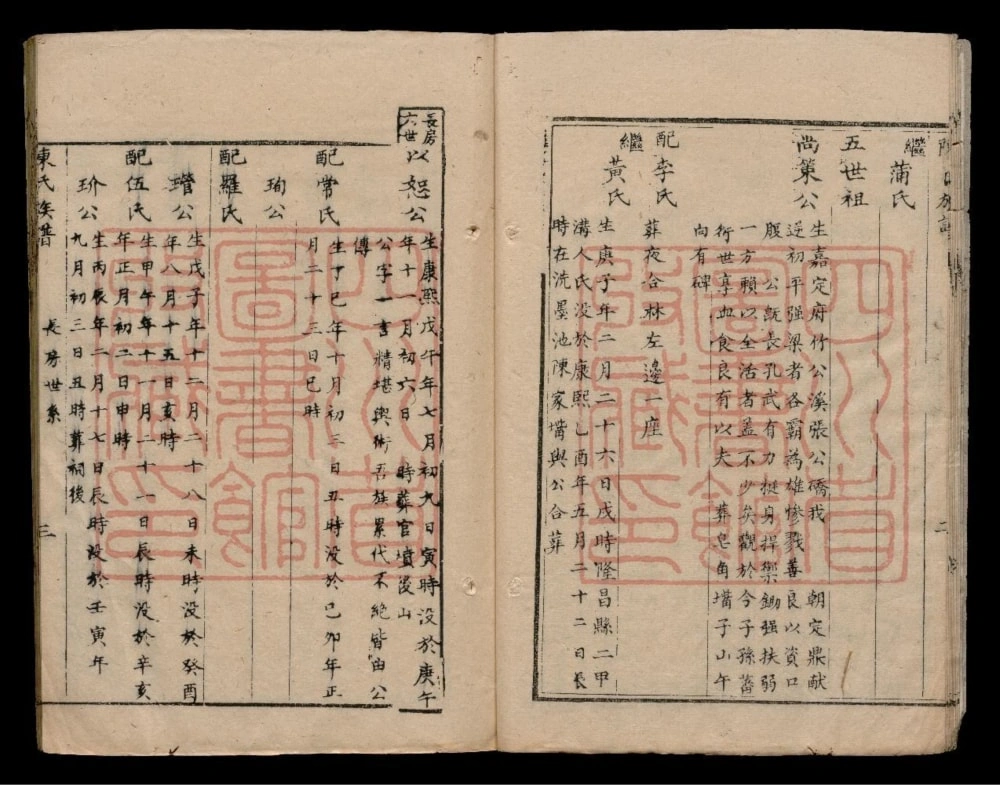 繼 蒲氏
五世祖
尚策公
生嘉定府竹公溪張公僑我 朝定鼎献
逆初平强梁者各霸為雄慘戮善良以資口
腹 公既長孔武有力挺身捍禦鋤强扶弱
一方賴以全活者盖不少矣觀於今子孫蕃
衍世享血食良有以夫 葬皂角壪子山午
向有碑
配李氏
葬夜合林左邊一座
繼黃氏
生庚子年二月二十六日戌時隆昌縣二甲
溝人氏没於康熙乙酉年五月二十二日長
時在洗墨池陳家壪與公合葬
二
長房
六世
以恕公
生康熙戊午年七月初九日寅時没於庚午
年十一月初六日 時葬官墳後山
公字一書精堪輿術吾族累代不絕皆由公
傳
配常氏
生丁巳年十月初三日丑時没於己卯年正
月二十三日巳時
珣公
配羅氏
瓚公
生戊子年十二月二十八日未時没於癸酉
年八月十五日亥時
配伍氏
生甲午年十一月二十一日辰時没於辛亥
年正月初二日申時
玠公
生丙辰年二月十七日辰時没於壬寅年
九月初三日丑時葬祠後
陳氏族譜
長房世系
三
四川省
圖書館
收藏印
四川省
圖書館
收藏印